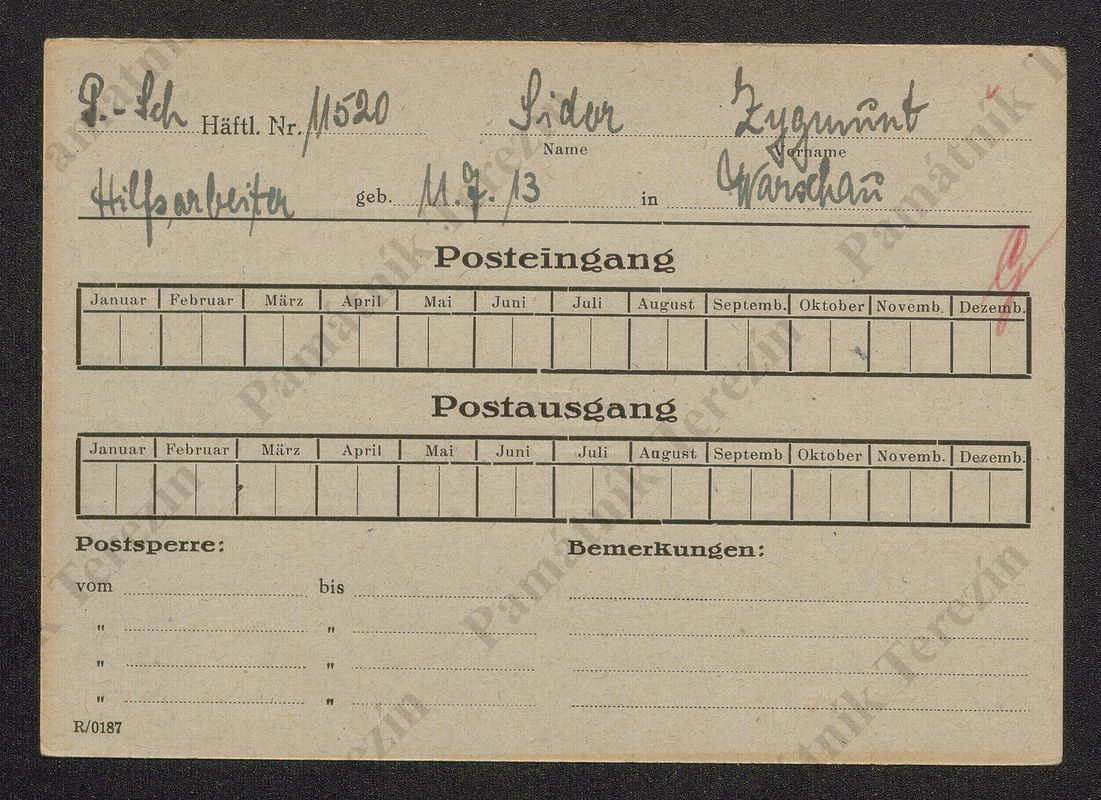 P.-Sch Häftl. Nr. 11520 Sidor Zygmunt
Name Vorname
Hilfsarbeiter geb. 11.7.13 in Warschau
Posteingang
Januar Februar März April Mai Juni Juli August Septemb. Oktober Novemb. Dezemb.
Postausgang
Januar Februar März April Mai Juni Juli August Septemb Oktober Novemb. Dezemb.
Postsperre: Bemerkungen:
vom bis
" "
" "
" "
R/0187
Památník Terezín